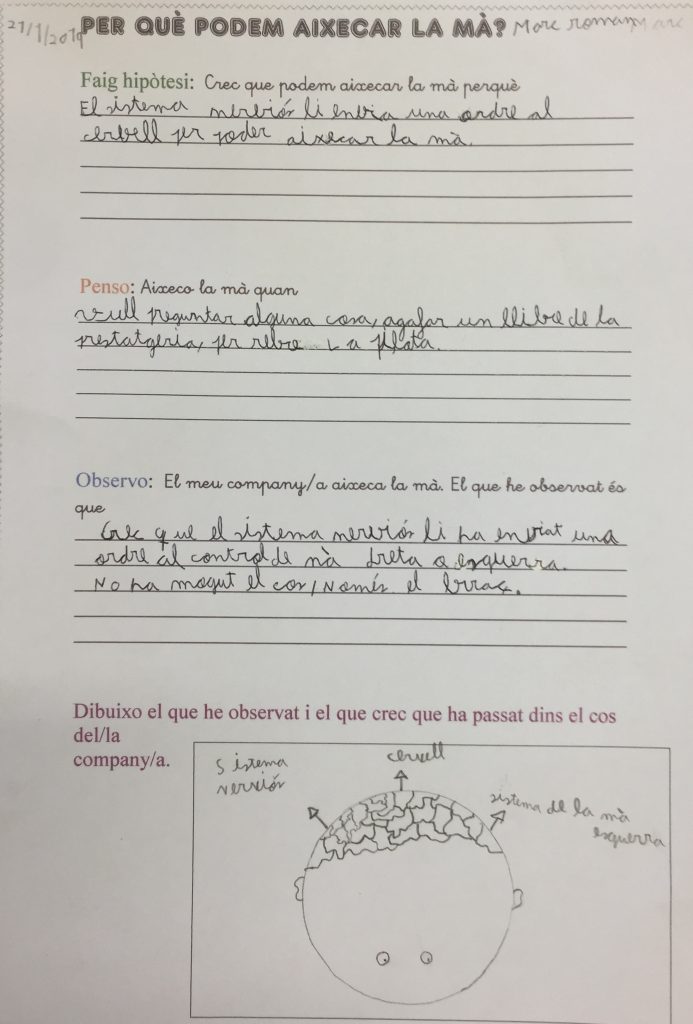 21/1/2019 PER QUÈ PODEM AIXECAR LA MÀ? Marc roman Marc
Faig hipòtesi: Crec que podem aixecar la mà perquè
El sistema nerviós li envia una ordre al
cervell per poder aixecar la mà.
Penso: Aixeco la mà quan
vull preguntar alguna cosa, agafar un llibre de la
prestatgeria, per rebre La pilota.
Observo: El meu company/a aixeca la mà. El que he observat és
que
Crec que el sistema nerviós li ha enviat una
ordre al control de mà dreta o esquerra.
No ha mogut el cos, Només el braç.
Dibuixo el que he observat i el que crec que ha passat dins el cos
del/la
company/a.
cervell
Sistema
nerviós
sistema de la mà
esquerra